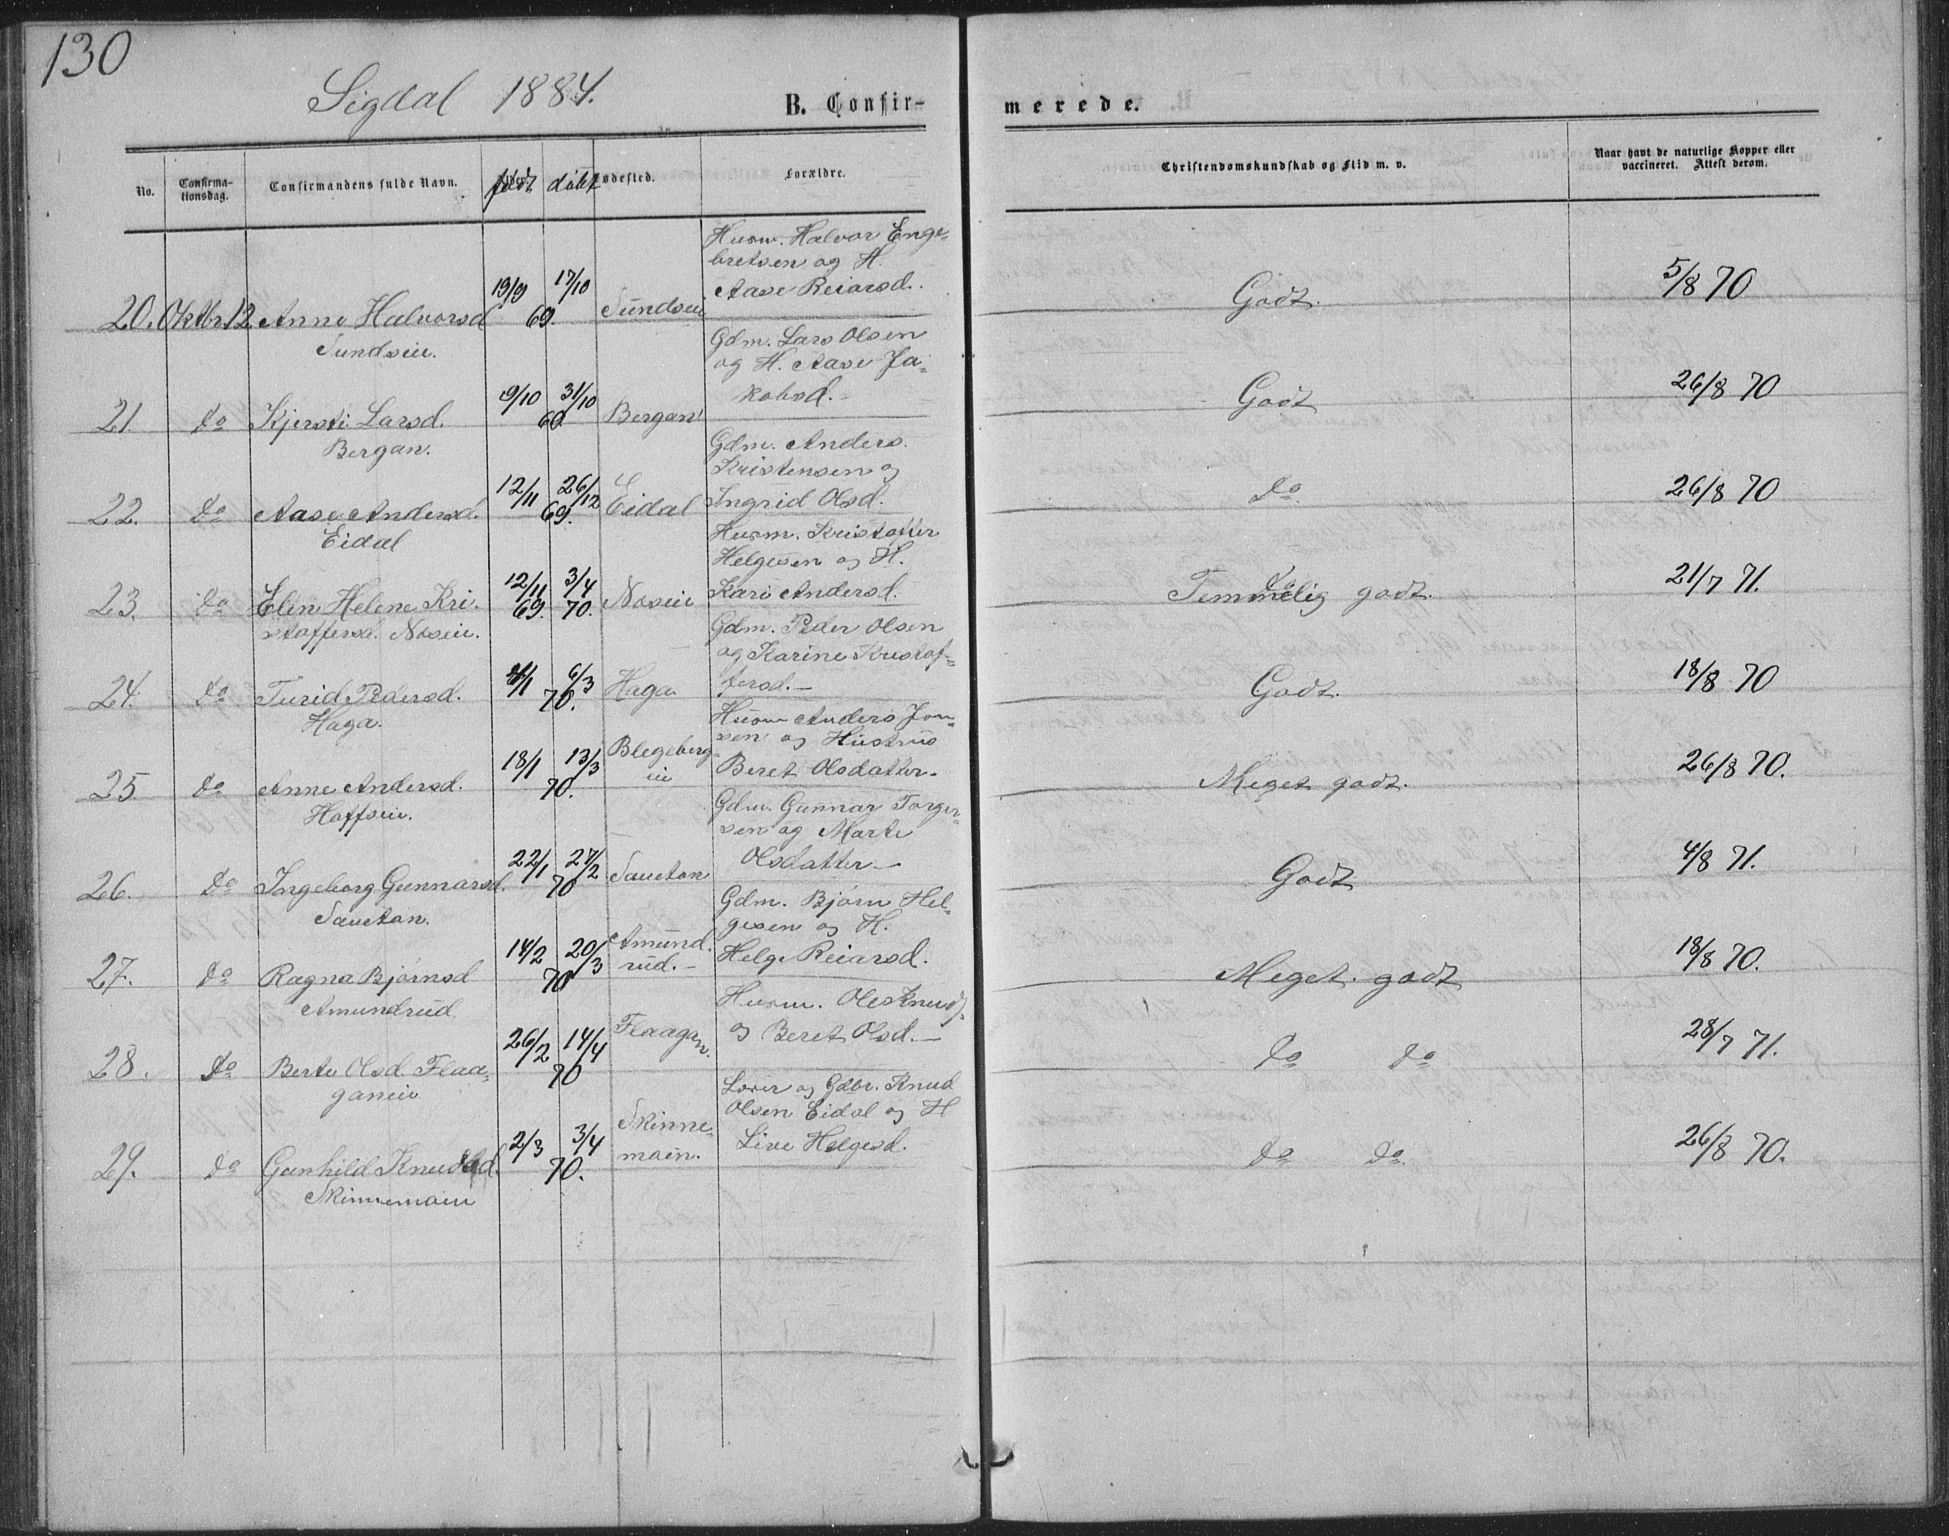 130
Sigdal 1884.
B. Confir-
merede.
No.
Confirma-
tionsdag.
Confirmandens fulde Navn.
født
døbt
Fødested.
Forældre.
Christendomskundskab og Flid m. v.
Naar havt de naturlige Kopper eller
vaccineret. Attest derom.
Husm. Halvor Enge-
bretsen og H.
Aase Reiarsd.
20. Oktbr. 12. Anne Halvorsd 19/9 17/10 Sundseie Godt. 5/8 70
69.
Sundseie.
Gdm. Lars Olsen
og H. Aase Ja-
kobsd.
21. do Kjersti Larsd. 9/10 31/10 Bergan Godt 26/8 70
69
Bergan.
Gdm. Anders
Kristensen og
Ingrid Olsd.
22. do Aase Andersd. 12/11 26/12 Eidal do 26/8 70
69.
Eidal
Husm. Kristoffer
Helgesen og H.
Kari Andersd.
23. do Elen Helene Kri- 12/11 3/4 Noseie Temmelig godt. 21/7 71.
69. 70.
stoffersd. Noseie.
Gdm. Peder Olsen
og Karine Kristof-
fersd. —
24. do Turid Pedersd. 6/3 Haga Godt. 18/8 70
70.
Haga.
Husm Anders Jon-
sen og Hustrus
Beret Olsdatter.
25 do Anne Andersd. 18/1 13/3 Blegeberg- Meget godt. 26/8 70.
70. eie
Hoffseie.
Gdm. Gunnar Torger-
sen og Marte
Olsdatter —
26. do Ingeborg Gunnarsd. 22/1 27/2 Saueton Godt 4/8 71.
70
Saueton.
Gdm. Bjørn Hel-
gesen og H.
Helge Reiarsd.
27. do Ragna Bjørnsd 14/2 20/3 Amund- Meget godt 18/8 70.
70 rud. —
Amundrud
Husm. Ole Knuds.
og Beret Olsd. —
28. do Berte Olsd. Flaa- 26/2 14/4 Flaagan. do do 28/7 71.
70
ganeie
Gdbr. Knud
Olsen Eidal og H
Live Helgesd.
29. do Gunhild Knudsd 2/3 3/4 Skinne- do do 26/8 70.
70. moin.
Skinnemoein